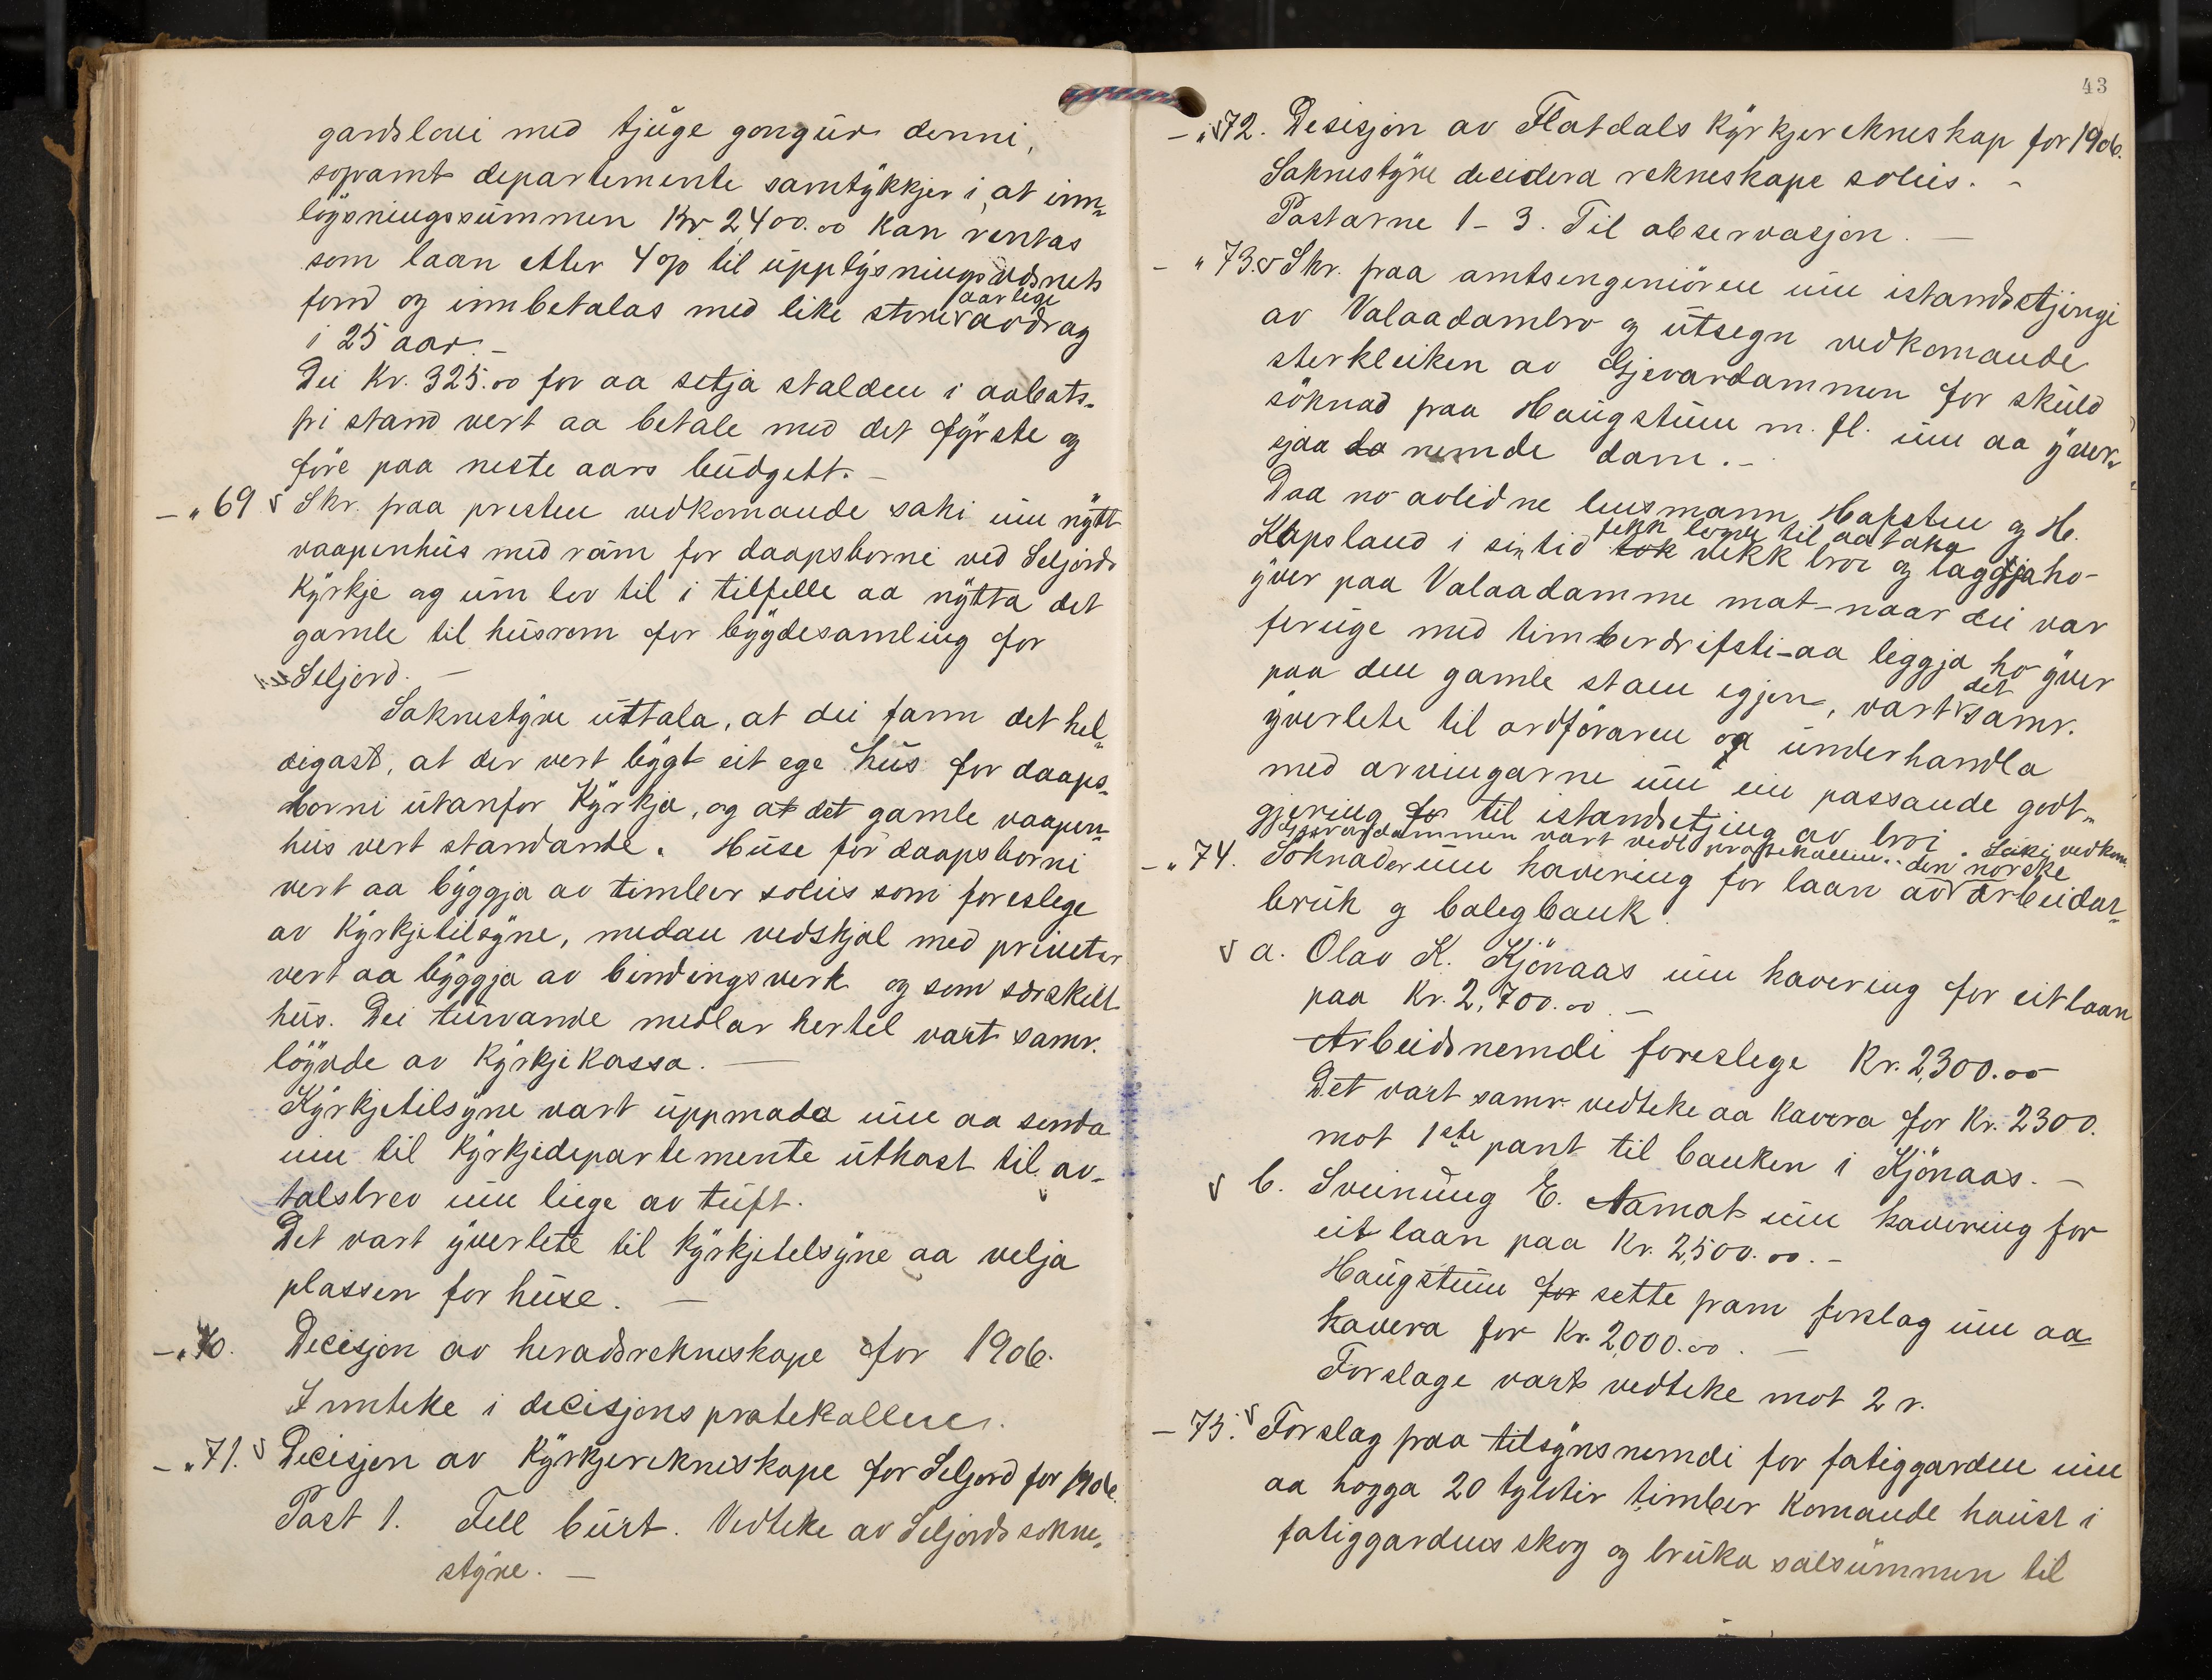 gardsloui med tjuge gongur denni,
sopramt departemente samtykkjer i, at inn-
löysningssummen Kr 2400.00 kan rentas
som laan etter 4 % til upplysningsvesnets
fond og innbetalas med like store aarlege avdrag
i 25 aar. –
Dei Kr. 325.00 for aa setja stalden i aabots-
fri stand vert aa betale med det fyrste og
före paa neste aars budgett. –
– „ 69 Skr. fraa presten vedkomande saki um nytt
vaapenhus med rom for daapsborni ved Seljords
Kyrkje og um lov til i tilfelle aa nytta det
gamle til husrom for bygdesamling for
Seljord. –
Soknestyre uttala, at dei fann det hel-
digast, at der vert bygt eit ege hus for daaps-
borni utanfor Kyrkja, og at det gamle vaapen-
hus vert standande. Huse for daapsborni
vert aa byggja av timber soleis som foreslege
av Kyrkjetilsyne, medan vedskjol med priveter
vert aa byggja av bindingsverk og som serskilt
hus. Dei turvande midlar hertil vart samr.
löyvde av Kyrkjekassa. –
Kyrkjetilsyne vart uppmoda um aa senda
inn til Kyrkjedepartemente utkast til av-
talsbrev um leige av tuft.
Det vart yverlete til Kyrkjetilsyne aa velja
plassen for huse. –
– „ 70. Decisjon av heradsrekneskape for 1906.
Innteke i decisjonsprotekollen.
– „ 71. Decisjon av Kyrkjerekneskape for Seljord for 1906.
Post 1. Fell burt. Vedteke av Seljords sokne-
styre. –
43
– „ 72. Desisjon av Flatdals Kyrkjerekneskap for 1906.
Soknestyre decidera rekneskape soleis. –
Postarne 1 – 3. Til observasjon. –
– „ 73. Skr. fraa amtsengeniören um istandsetjingi
av Valaadambro og utsegn vedkomande
sterkleiken av Gjevardammen for skuld
söknad fraa Haugstuen m. fl. um aa yver-
sjaa do nemde dam. –
Daa no avlidne lensmann Hafsten og H.
Kapsland i sin tid tok fekk lov til aa taka vekk broi og laggja ho
yver paa Valaadamme mot – naar dei var
feruge med timberdrifti – aa leggja ho yver
paa den gamle staen egjen, vart det samr.
yverlete til ordföraren og underhandla
med arvingarne um ein passande godt-
gjering fo til istandsetjing av broi. Saki vedkom.
Gjevardammen vart vedl. protekollen.
– „ 74. Söknader um kavering for laan av den norske arbeidar-
bruk og bolegbank.
a. Olav K. Kjönaas um kavering for eit laan
paa Kr. 2,700.00. –
Arbeidsnemdi foreslege Kr. 2,300.00
Det vart samr. vedteke aa kavera for Kr. 2300.
mot 1ste pant til banken i Kjönaas. –
b. Sveinung E. Aamot um kavering for
eit laan paa Kr. 2,500.00. –
Haugstuen for sette fram forslag um aa
kavera for Kr. 2,000.00. –
Forslage vart vedteke mot 2 r.
– 75. Forslag fraa tilsynsnemdi for fatiggarden um
aa hogga 20 tylvtir timber komande haust i
fatiggardens skog og bruka salsummen til